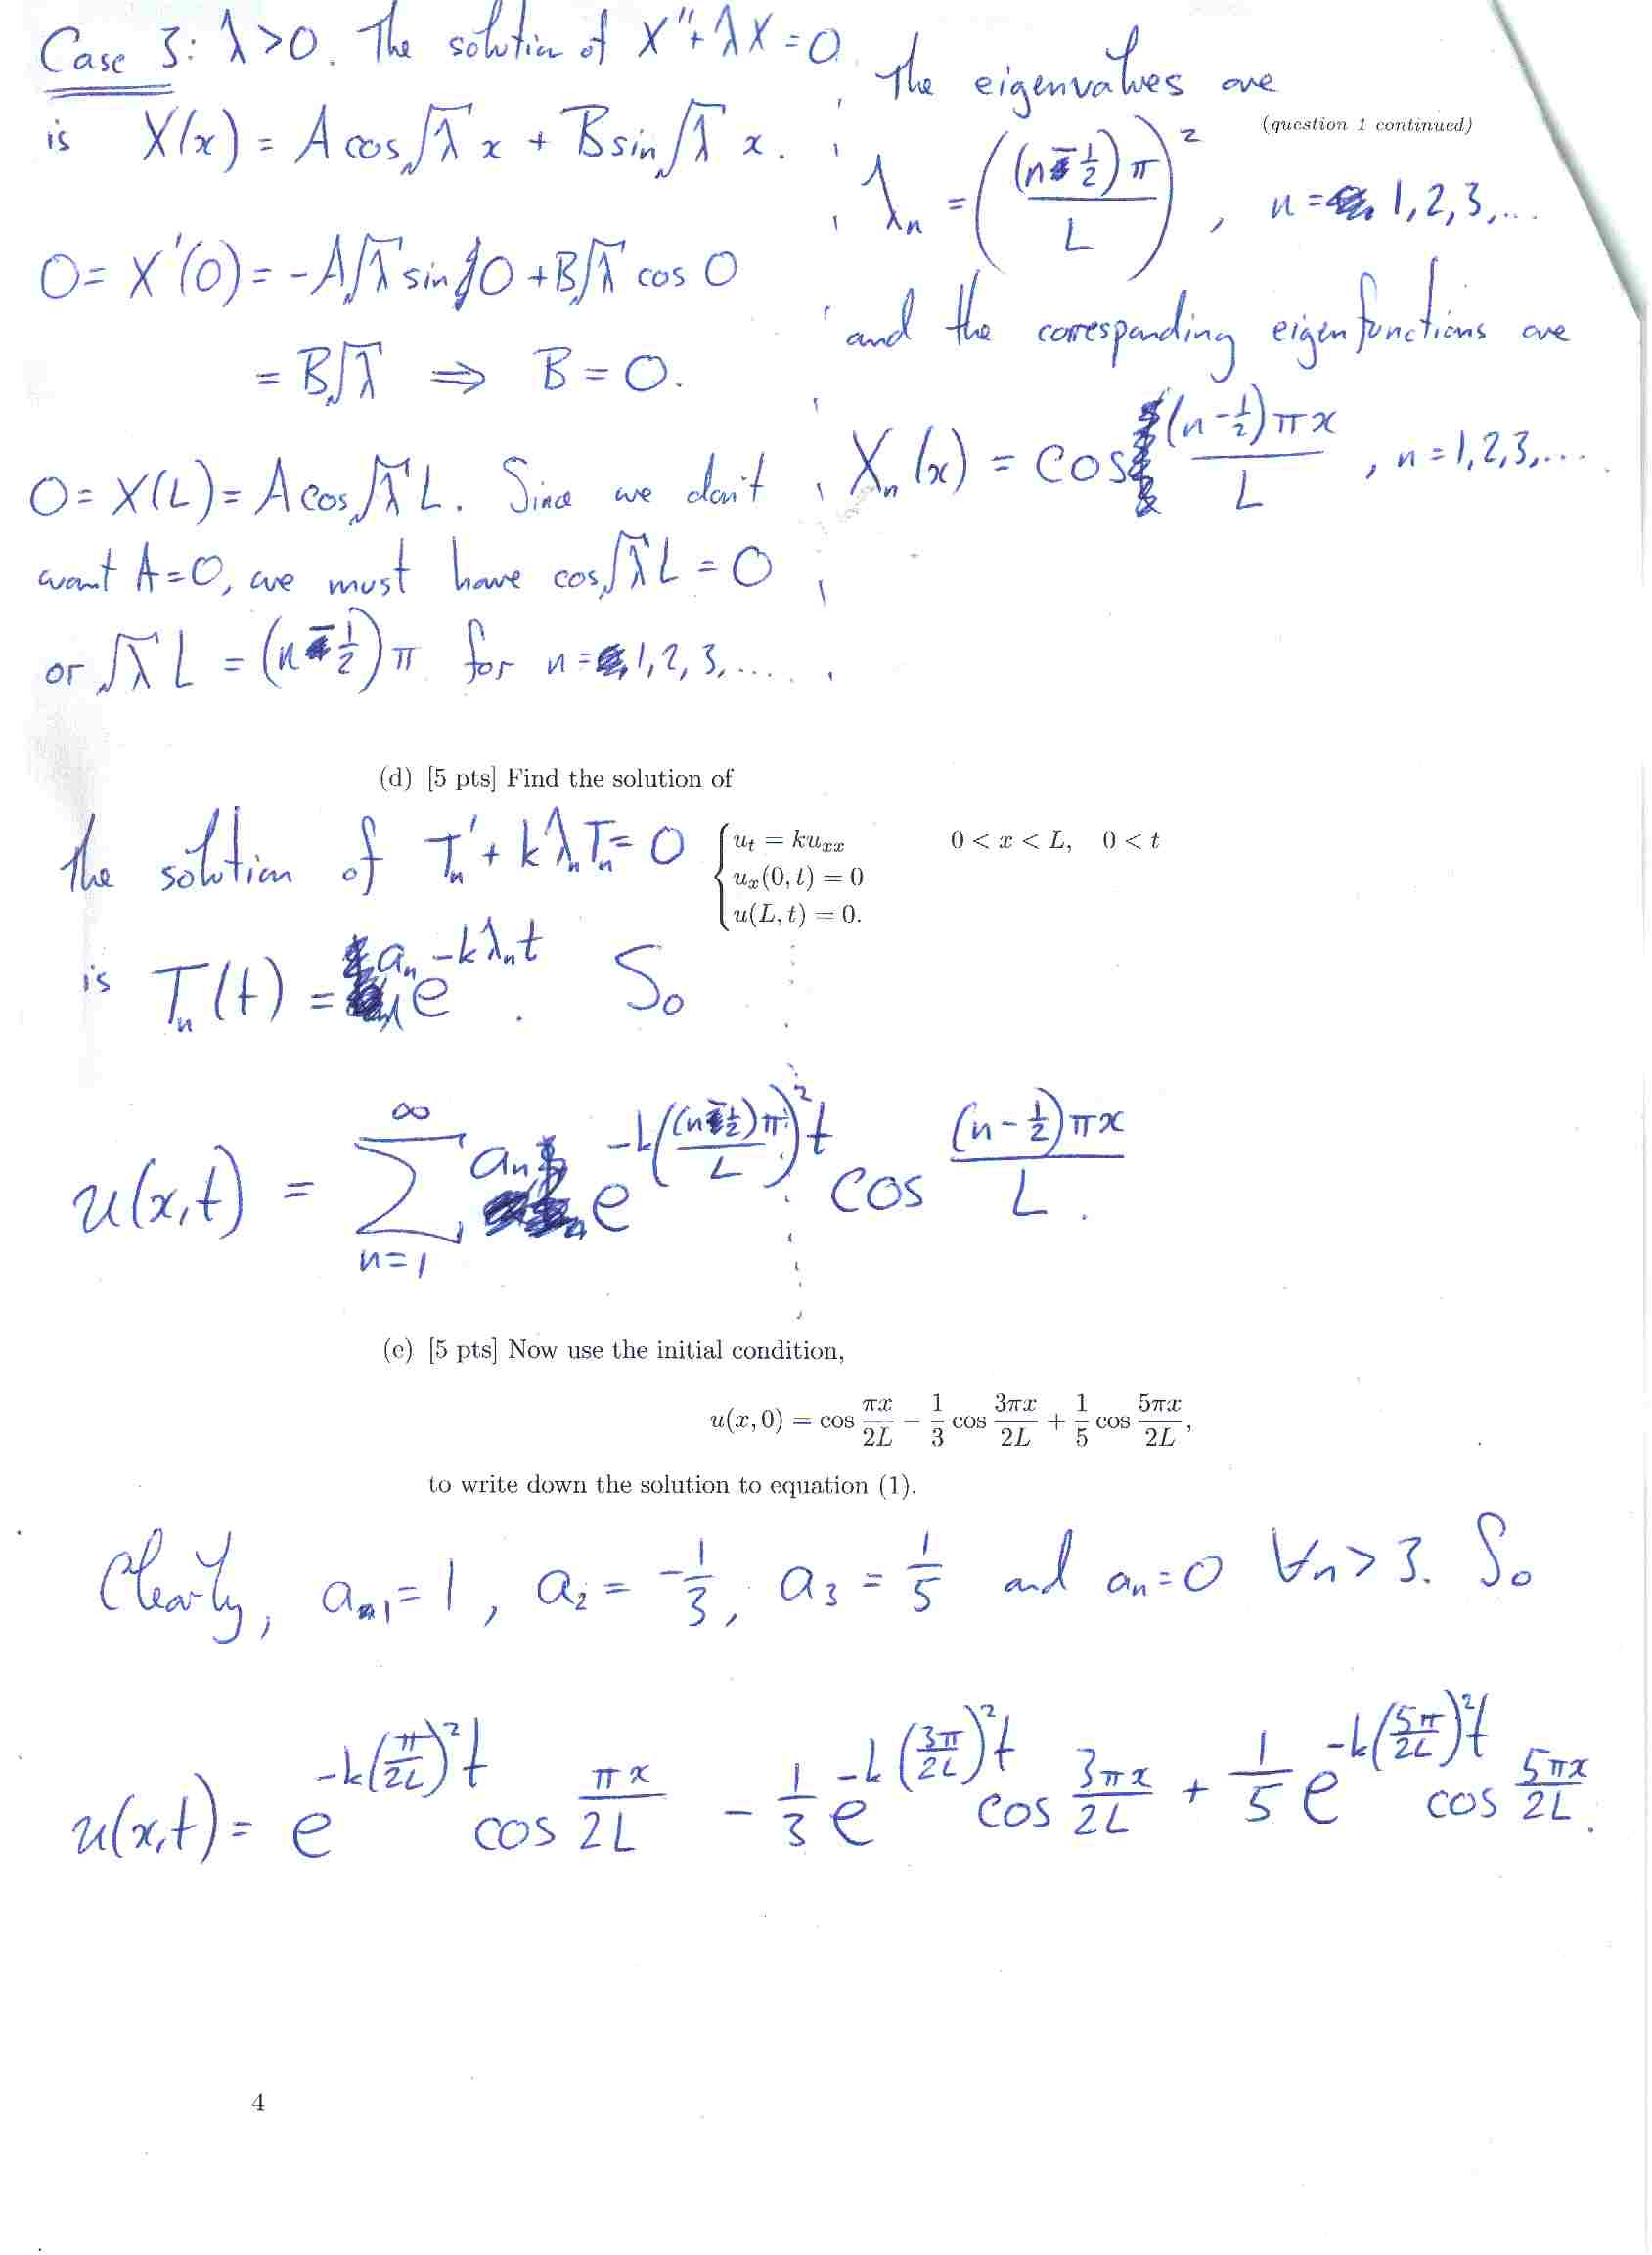 Case 3: λ>0. The solution of X''+λX=0
is X(x) = A cos√λ x + B sin√λ x.
0 = X'(0) = -A√λ sin 0 + B√λ cos 0
= B√λ ⇒ B=0.
0 = X(L) = A cos√λ L. Since we don't
want A=0, we must have cos√λ L = 0
or √λ L = (n-1/2)π for n=1,2,3,....
The eigenvalues are
(question 1 continued)
λn = ((n-1/2)π/L)^2, n=1,2,3,...
and the corresponding eigenfunctions are
Xn(x) = cos (n-1/2)πx/L, n=1,2,3,....
(d) [5 pts] Find the solution of
ut = kuxx 0 < x < L, 0 < t
ux(0, t) = 0
u(L, t) = 0.
The solution of Tn' + kλnTn = 0
is Tn(t) = an e^(-kλnt). So
u(x,t) = ∑_{n=1}^{∞} an e^(-k((n-1/2)π/L)^2 t) cos (n-1/2)πx/L.
(e) [5 pts] Now use the initial condition,
u(x, 0) = cos πx/2L − 1/3 cos 3πx/2L + 1/5 cos 5πx/2L,
to write down the solution to equation (1).
Clearly, a1=1, a2 = -1/3, a3 = 1/5 and an=0 ∀n>3. So
u(x,t) = e^(-k(π/2L)^2 t) cos πx/2L - 1/3 e^(-k(3π/2L)^2 t) cos 3πx/2L + 1/5 e^(-k(5π/2L)^2 t) cos 5πx/2L.
4